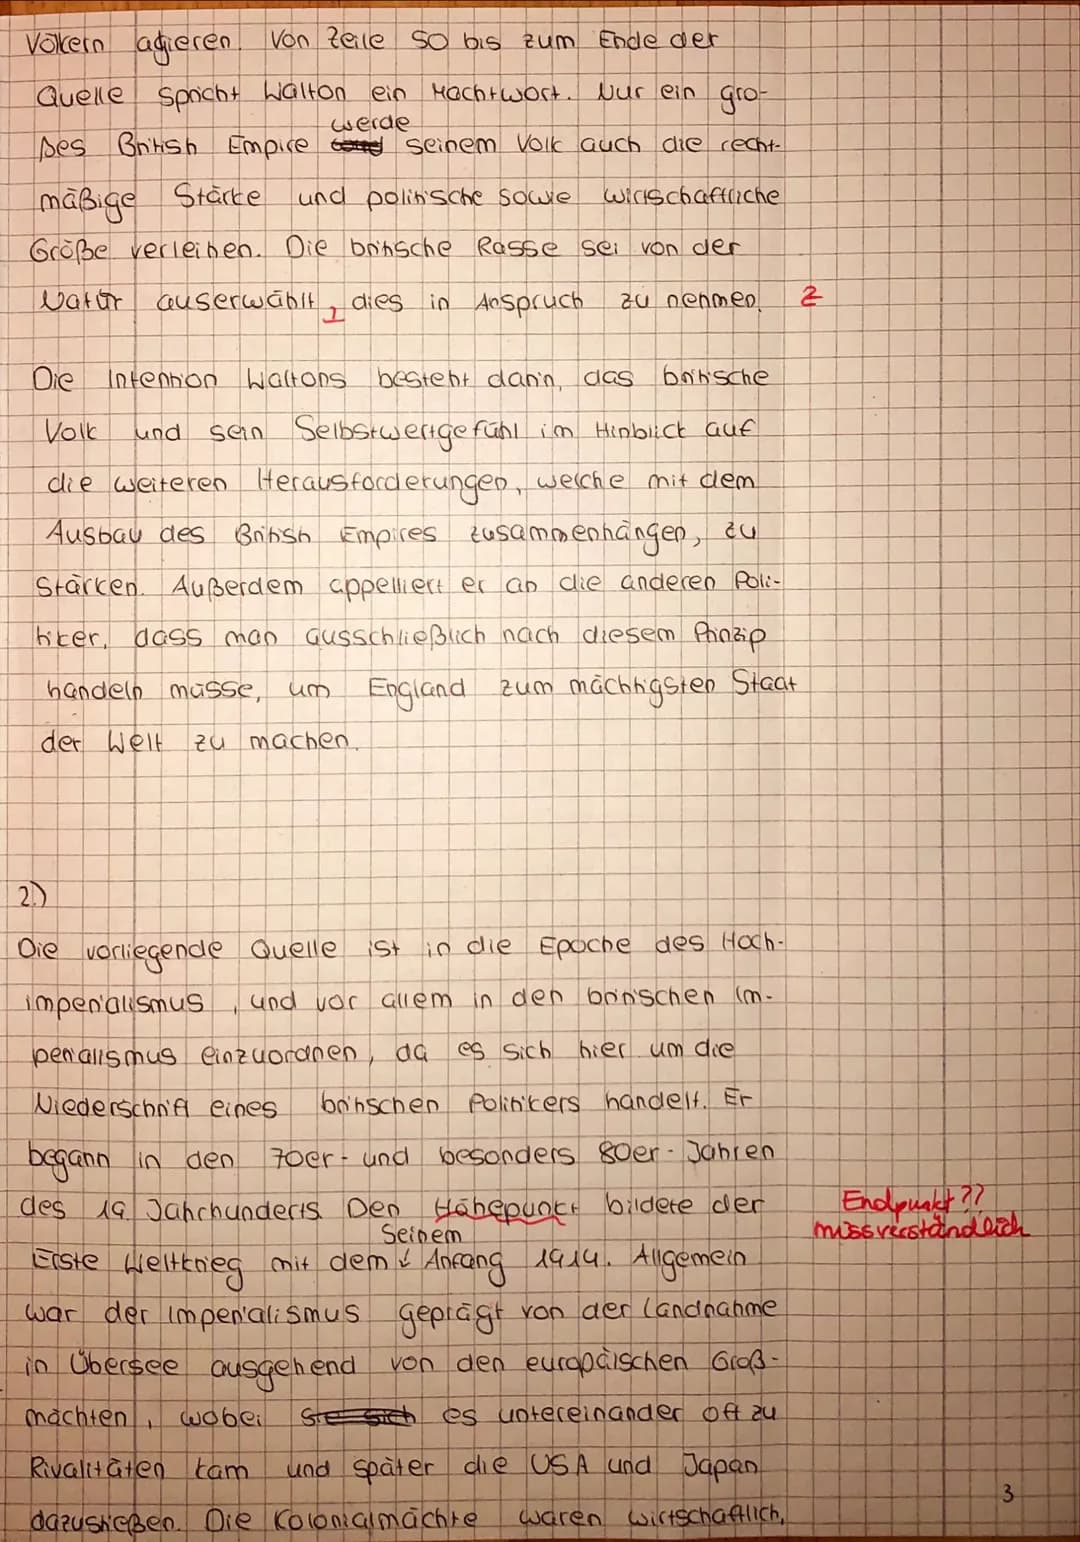 Völkern agieren. Von Zeile 50 bis zum Ende der
Quelle spricht Walton ein Machtwort. Nur ein gro-
ßes British Empire werde seinem Volk auch die recht-
mäßige Stärke und politische sowie wirtschaftliche
Größe verleihen. Die britische Rasse sei von der
Natur auserwählt, dies in Anspruch zu nehmen. 2
Die Intention Waltons besteht darin, das britische
Volk und sein Selbstwertgefühl im Hinblick auf
die weiteren Herausforderungen, welche mit dem
Ausbau des British Empires zusammenhängen, zu
stärken. Außerdem appelliert er an die anderen Poli-
tiker, dass man ausschließlich nach diesem Prinzip
handeln müsse, um England zum mächtigsten Staat
der Welt zu machen.
2.)
Die vorliegende Quelle ist in die Epoche des Hoch-
imperialismus, und vor allem in den britischen Im-
perialismus einzuordnen, da es sich hier um die
Niederschrift eines britischen Politikers handelt. Er
begann in den 70er- und besonders 80er-Jahren
des 19. Jahrhunderts. Den Höhepunkt bildete der Endpunkt??
Erste Weltkrieg mit dem Seinem Anfang 1914. Allgemein missverständlich
war der Imperialismus geprägt von der Landnahme
in Übersee ausgehend von den europäischen Groß-
mächten, wobei sie sich es untereinander oft zu
Rivalitäten kam und später die USA und Japan
dazustießen. Die Kolonialmächte waren wirtschaftlich,
3